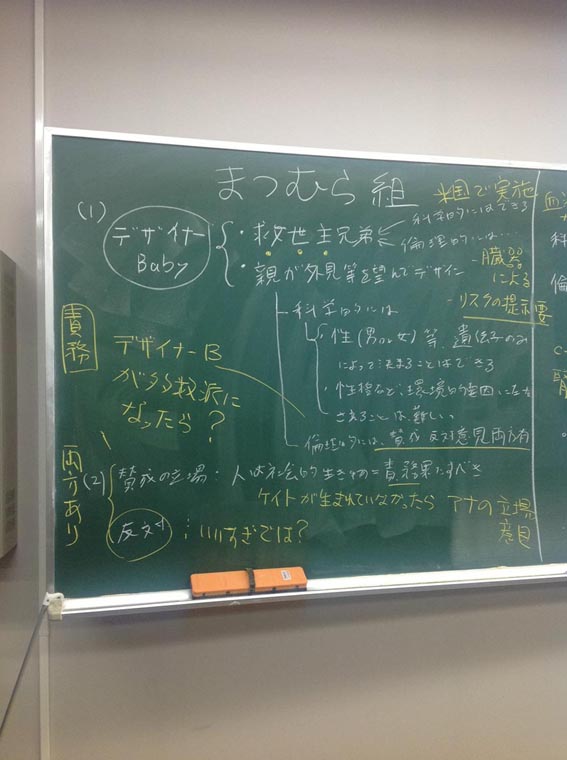 まつむら組
米国で実施
(1)
デザイナー
Baby
・救世主兄弟
科学的にはできる
倫理的には…
- 臓器
による
・親が外見等を望んでデザイン
- リスクの提示要
科学的には
・性(男or女)等、遺伝子のみ
によって決まることはできる
・性格など、環境的要因に左右
されることは難しい
倫理的には、賛成反対意見両方有
責務
デザイナーB
が多数派に
なったら?
両方あり
(2)
賛成の立場・人は社会的生きもの=責務果たすべき
ケイトが生まれていなかったら アナの立場
意見
反対
: いいすぎでは?
血
科
倫